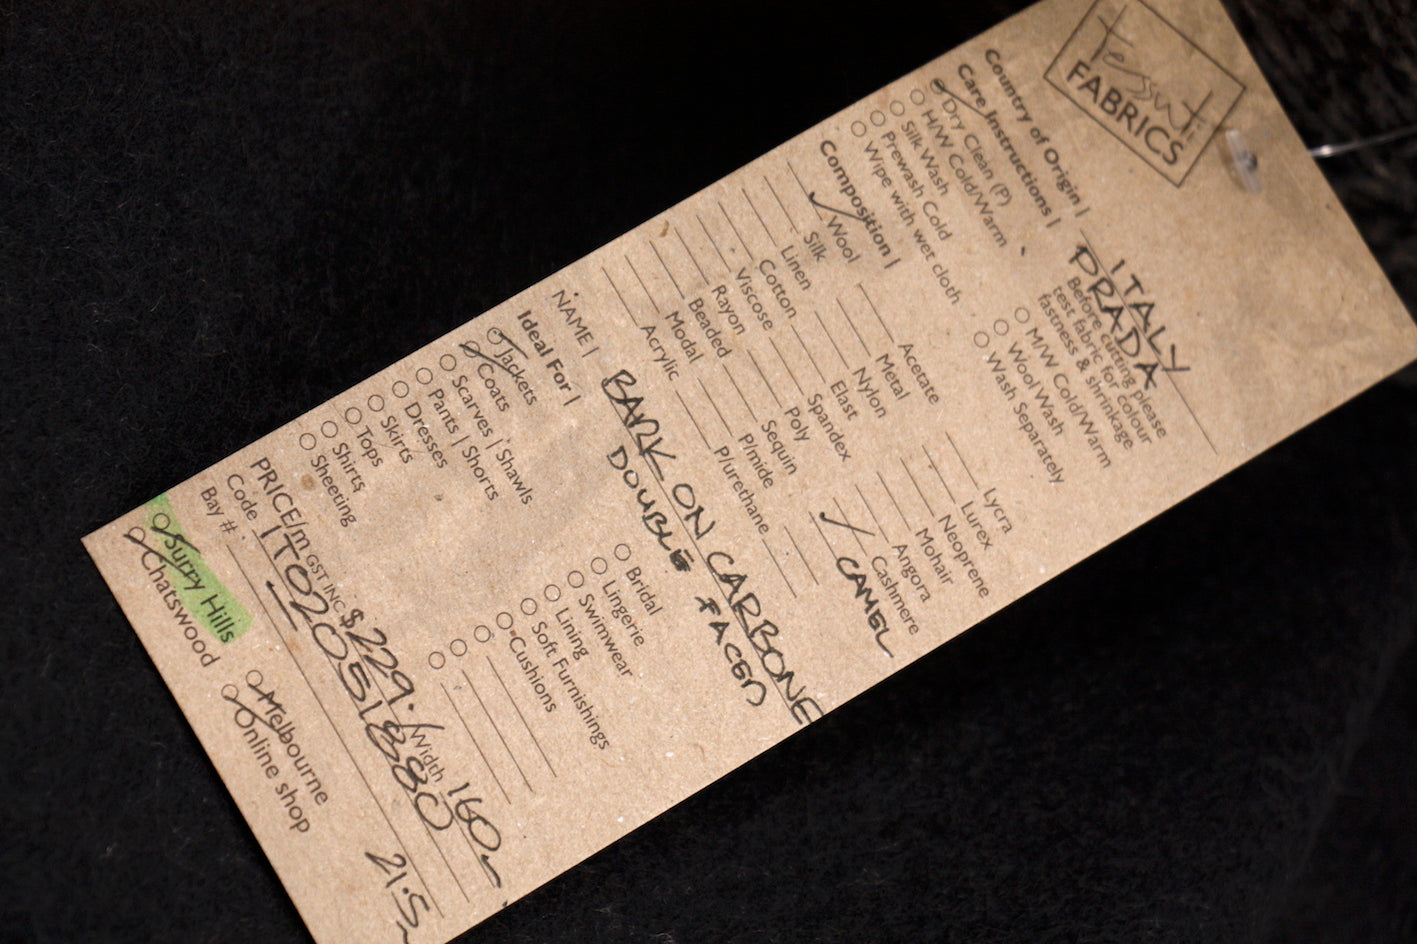 Tessuti
FABRICS
Country of Origin | ITALY
PRADA
Care Instructions | Before cutting please
test fabric for colour
fastness & shrinkage
Dry Clean (P)
H/W Cold/Warm
Silk Wash
Prewash Cold
Wipe with wet cloth
M/W Cold/Warm
Wool Wash
Wash Separately
Composition |
Wool
Silk
Linen
Cotton
Viscose
Rayon
Beaded
Modal
Acrylic
Acetate
Metal
Nylon
Elast
Spandex
Poly
Sequin
P/mide
P/urethane
Lycra
Lurex
Neoprene
Mohair
Angora
Cashmere
CAMEL
NAME | BARK ON CARBONE
DOUBLE FACED
Ideal For |
Jackets
Coats
Scarves | Shawls
Pants | Shorts
Dresses
Skirts
Tops
Shirts
Sheeting
Bridal
Lingerie
Swimwear
Lining
Soft Furnishings
Cushions
PRICE/m GST INC $229.- / Width 160
Code ITO20518880
Bay # 21.5
Surry Hills
Chatswood
Melbourne
Online shop